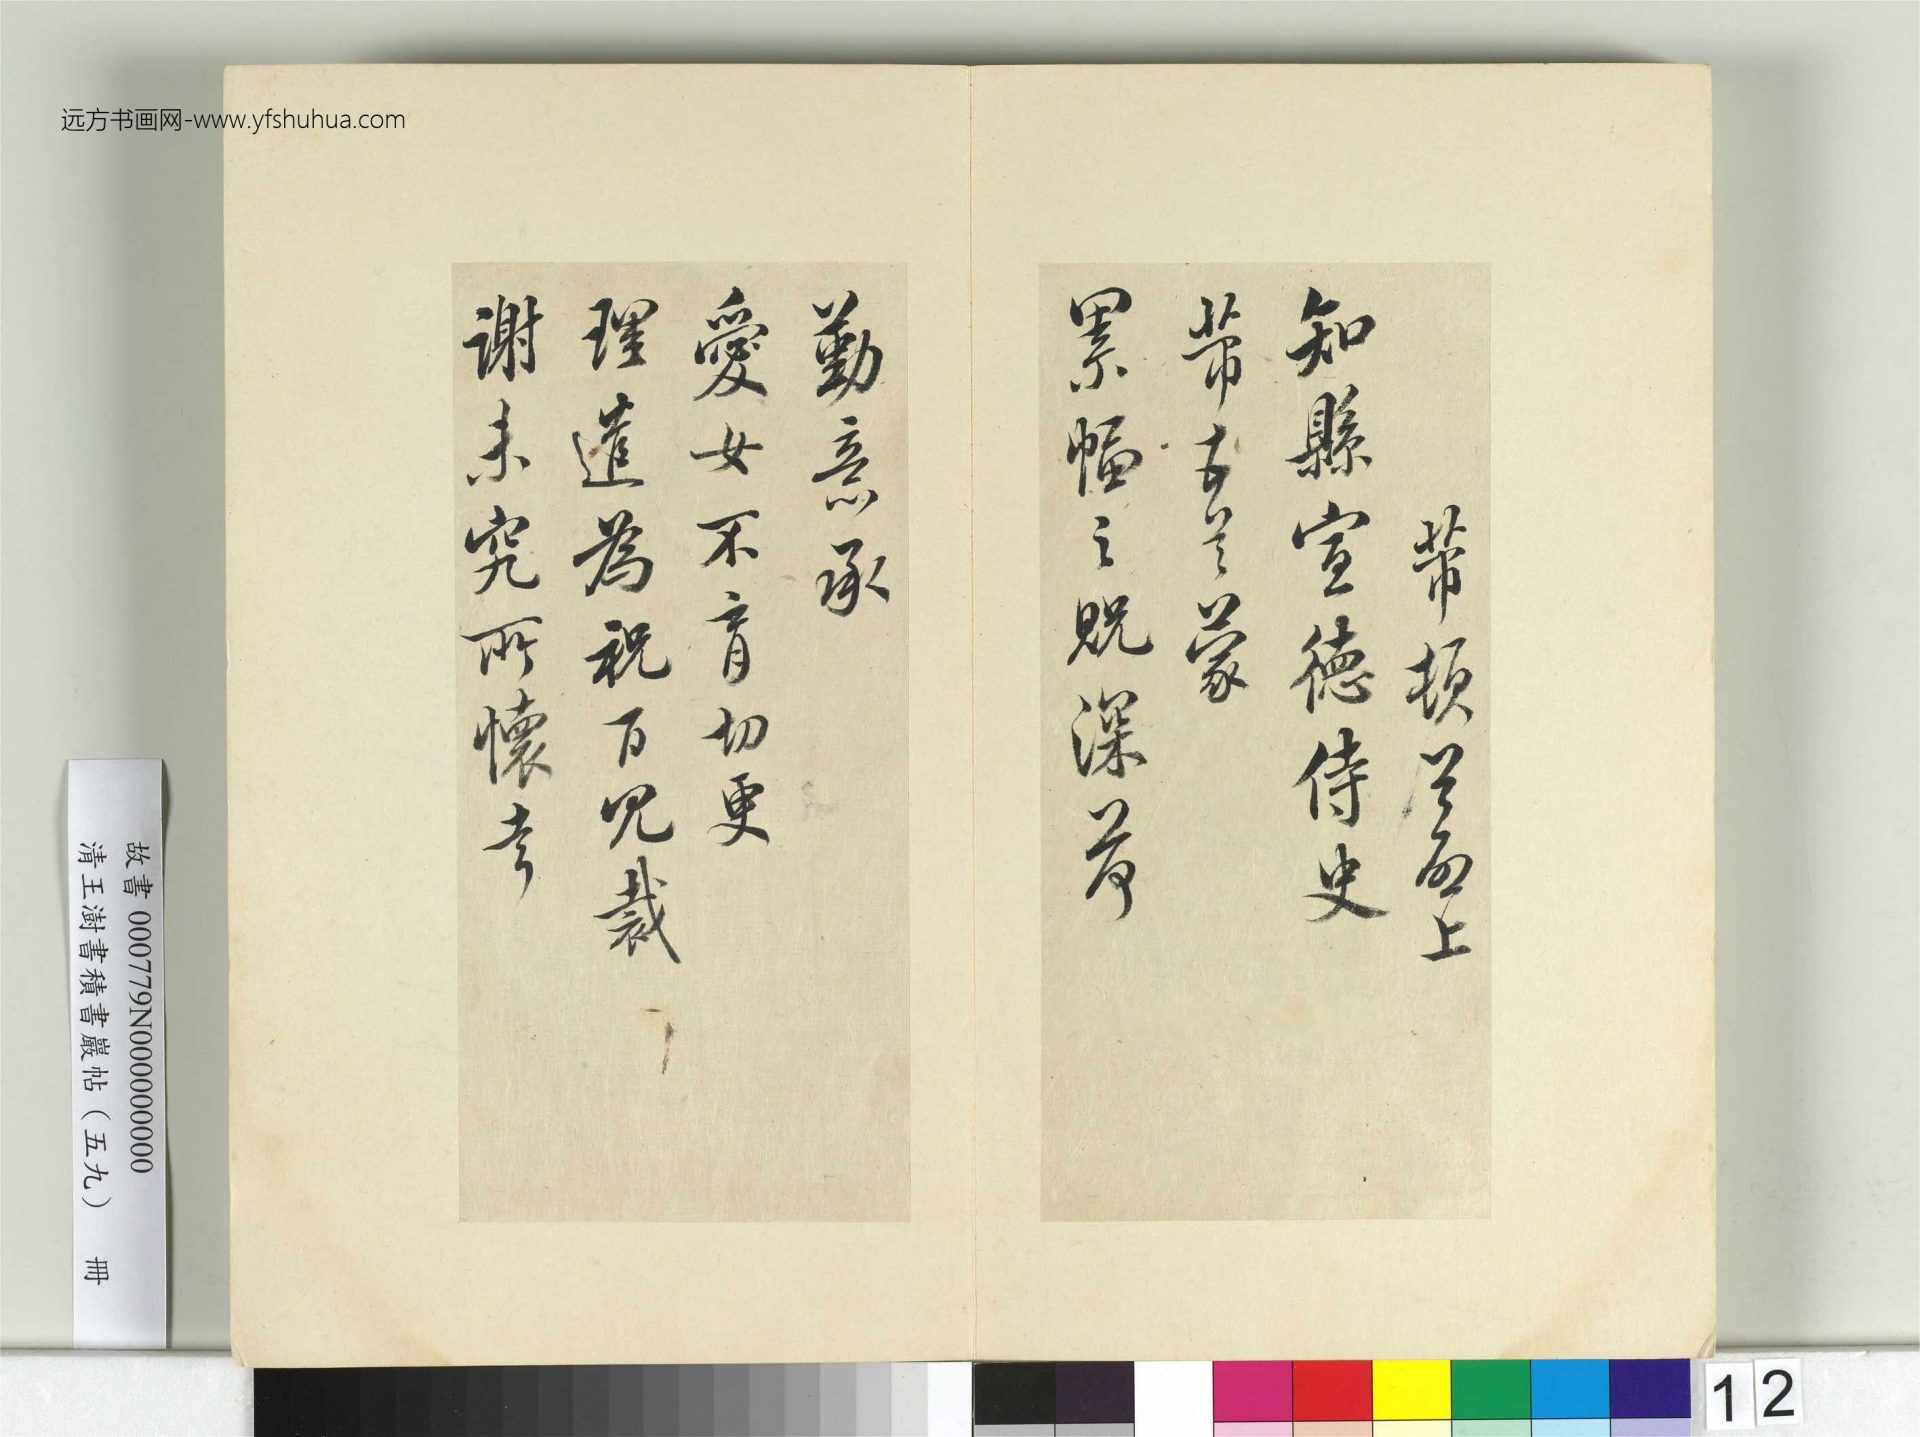 远方书画网-www.yfshuhua.com
芾頓首再上
知縣宣德侍史
芾頓首蒙
累幅之貺深荷
勤意承
愛女不育切更
理遣為祝百冗裁
謝未究所懷幸
故書 000779N000000000
清王澍書積書巖帖(五九) 冊
12